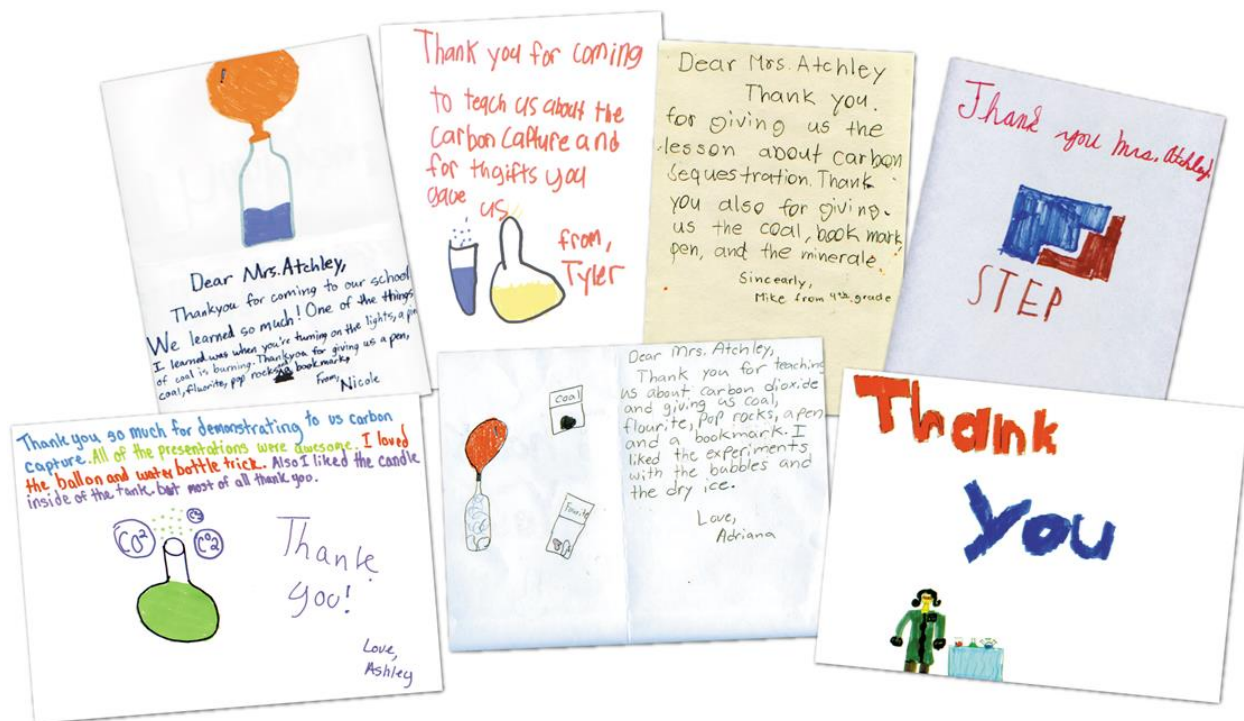 Dear Mrs. Atchley,
Thankyou for coming to our school
We learned so much! One of the things
I learned was when you're turning on the lights, a pin
of coal is burning. Thankyou for giving us a pen,
coal, fluorite, pop rocks, a bookmark,
From,
Nicole
Thank you for coming
to teach us about the
carbon capture and
for thgifts you
gave us
from,
Tyler
Dear Mrs. Atchley
Thank you.
for giving us the
lesson about carbon
sequestration. Thank
you also for giving.
us the coal, book mark,
pen, and the minerale.
Sincearly,
Mike from 4th grade
Thank you Mrs. Atchley.
STEP
Thank you so much for demonstrating to us carbon
capture. All of the presentations were awesome. I loved
the ballon and water bottle trick. Also I liked the candle
inside of the tank. but most of all thank you.
CO2
CO2
CO2
Thank
you!
Love,
Ashley
Coal
Flourite
Dear Mrs. Atchley,
Thank you for teaching
us about carbon dioxide
and giving us coal,
flourite, pop rocks, a pen
and a bookmark. I
liked the experiments
with the bubbles and
the dry ice.
Love,
Adriana
Thank
you